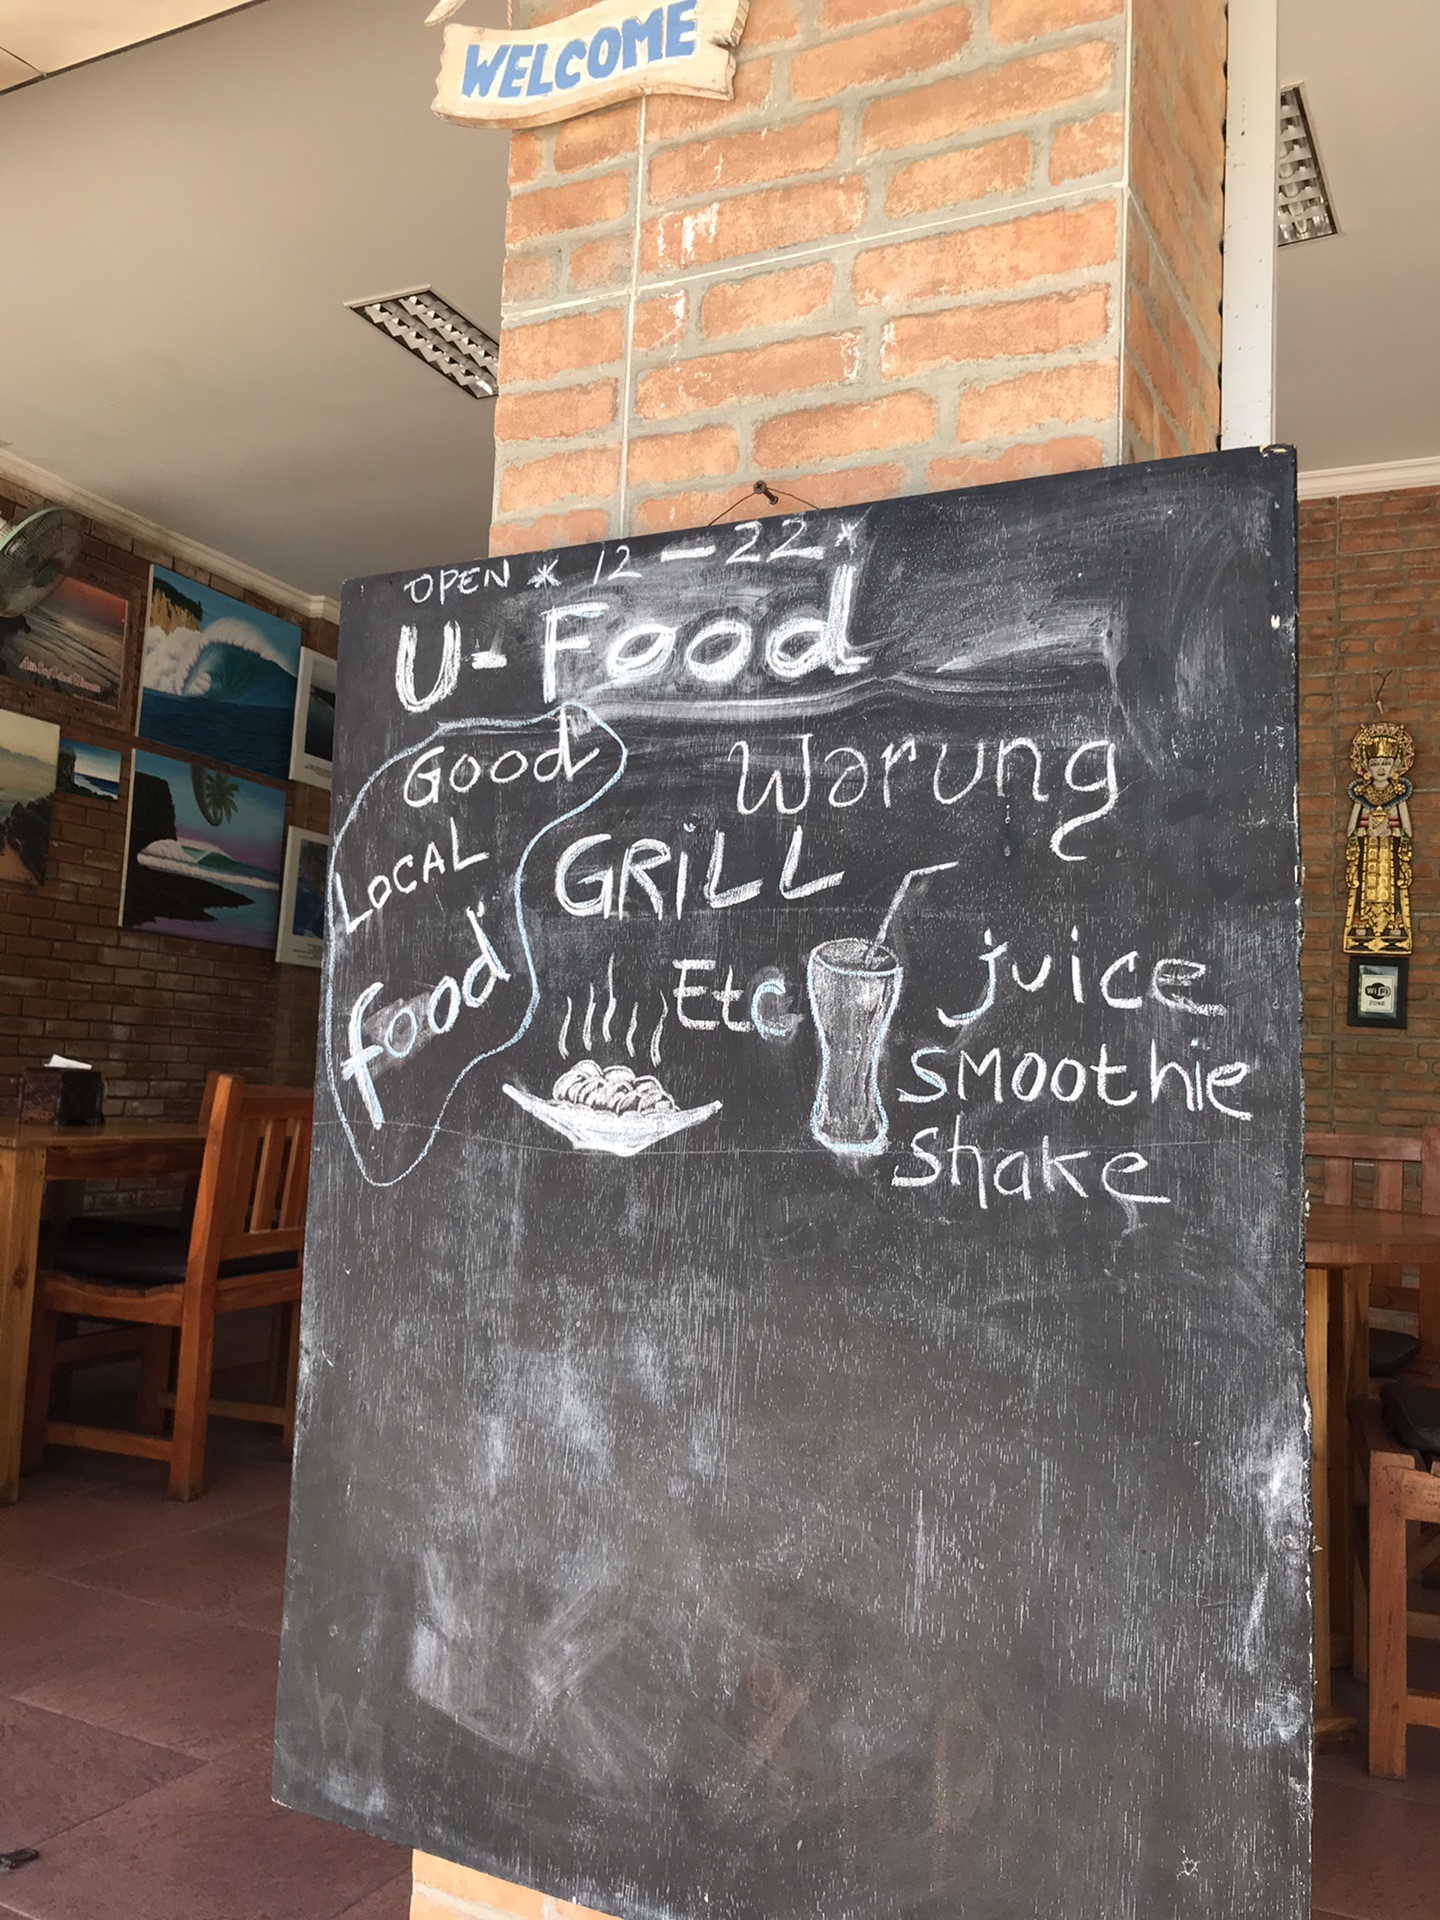 WELCOME
OPEN * 12 - 22 *
U-Food
Good
LOCAL
food
Warung
GRiLL
Etc
juice
SMOOthie
Shake
Wi Fi
ZONE